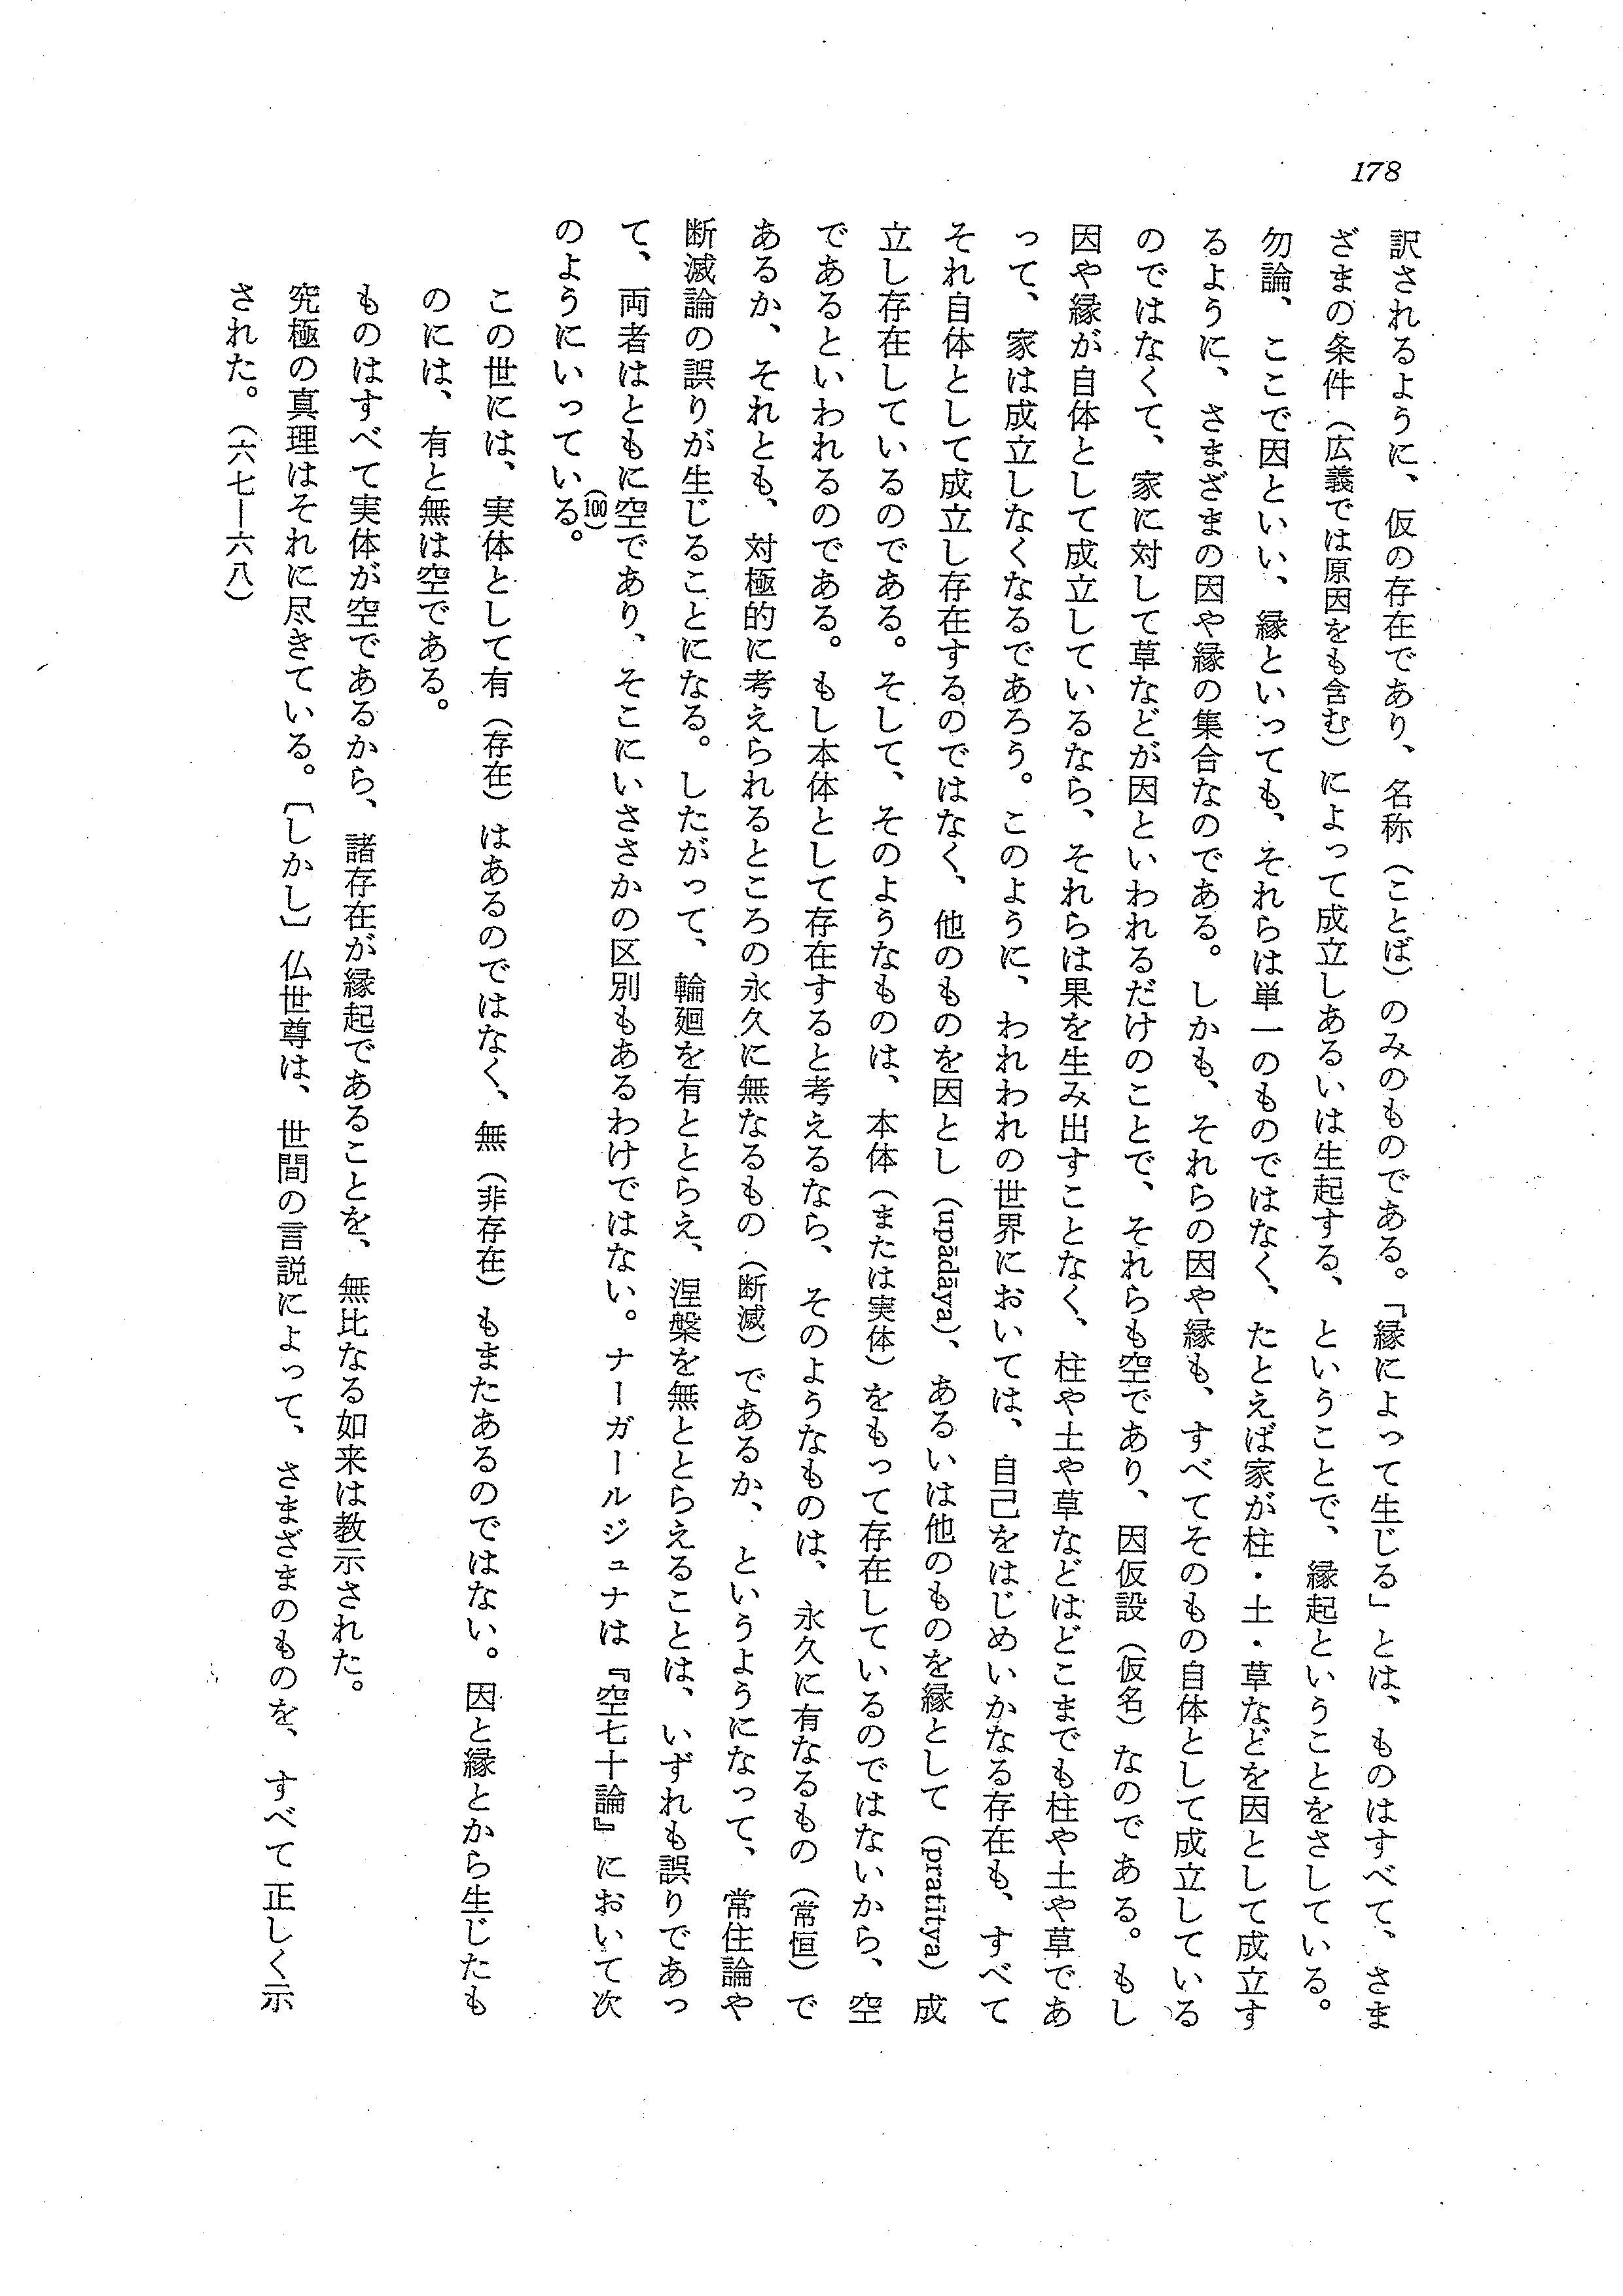 178
訳されるように、仮の存在であり、名称（ことば）のみのものである。「縁によって生じる」とは、ものはすべて、さま
ざまの条件（広義では原因をも含む）によって成立しあるいは生起する、ということで、縁起ということをさしている。
勿論、ここで因といい、縁といっても、それらは単一のものではなく、たとえば家が柱・土・草などを因として成立す
るように、さまざまの因や縁の集合なのである。しかも、それらの因や縁も、すべてそのもの自体として成立している
のではなくて、家に対して草などが因といわれるだけのことで、それらも空であり、因仮設（仮名）なのである。もし
因や縁が自体として成立しているなら、それらは果を生み出すことなく、柱や土や草などはどこまでも柱や土や草であ
って、家は成立しなくなるであろう。このように、われわれの世界においては、自己をはじめいかなる存在も、すべて
それ自体として成立し存在するのではなく、他のものを因とし（upādāya）、あるいは他のものを縁として（pratītya）成
立し存在しているのである。そして、そのようなものは、本体（または実体）をもって存在しているのではないから、空
であるといわれるのである。もし本体として存在すると考えるなら、そのようなものは、永久に有なるもの（常恒）で
あるか、それとも、対極的に考えられるところの永久に無なるもの（断滅）であるか、というようになって、常住論や
断滅論の誤りが生じることになる。したがって、輪廻を有ととらえ、涅槃を無ととらえることは、いずれも誤りであっ
て、両者はともに空であり、そこにいささかの区別もあるわけではない。ナーガールジュナは『空七十論』において次
のようにいっている。(100)
この世には、実体として有（存在）はあるのではなく、無（非存在）もまたあるのではない。因と縁とから生じたも
のには、有と無は空である。
ものはすべて実体が空であるから、諸存在が縁起であることを、無比なる如来は教示された。
究極の真理はそれに尽きている。〔しかし〕仏世尊は、世間の言説によって、さまざまのものを、すべて正しく示
された。（六七―六八）